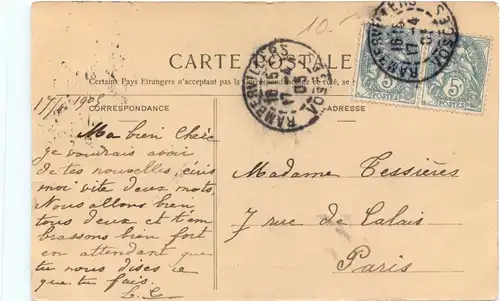 10.-
CARTE POSTALE
Certains Pays Etrangers n'acceptant pas la correspondance de ce côté, se
17/4 1905
CORRESPONDANCE
ADRESSE
Ma bien Chère
je voudrais avoir
de tes nouvelles, écris
moi vite deux mots.
Nous allons bien
tous deux et t'em
brassons bien fort
en attendant que
tu nous dises ce
que tu fais.
Madame Tessières
7 rue de Calais
Paris
RAMBERVILLERS
VOSGES
RAMBERVILLERS
VOSGES
5
POSTES
5
POSTES